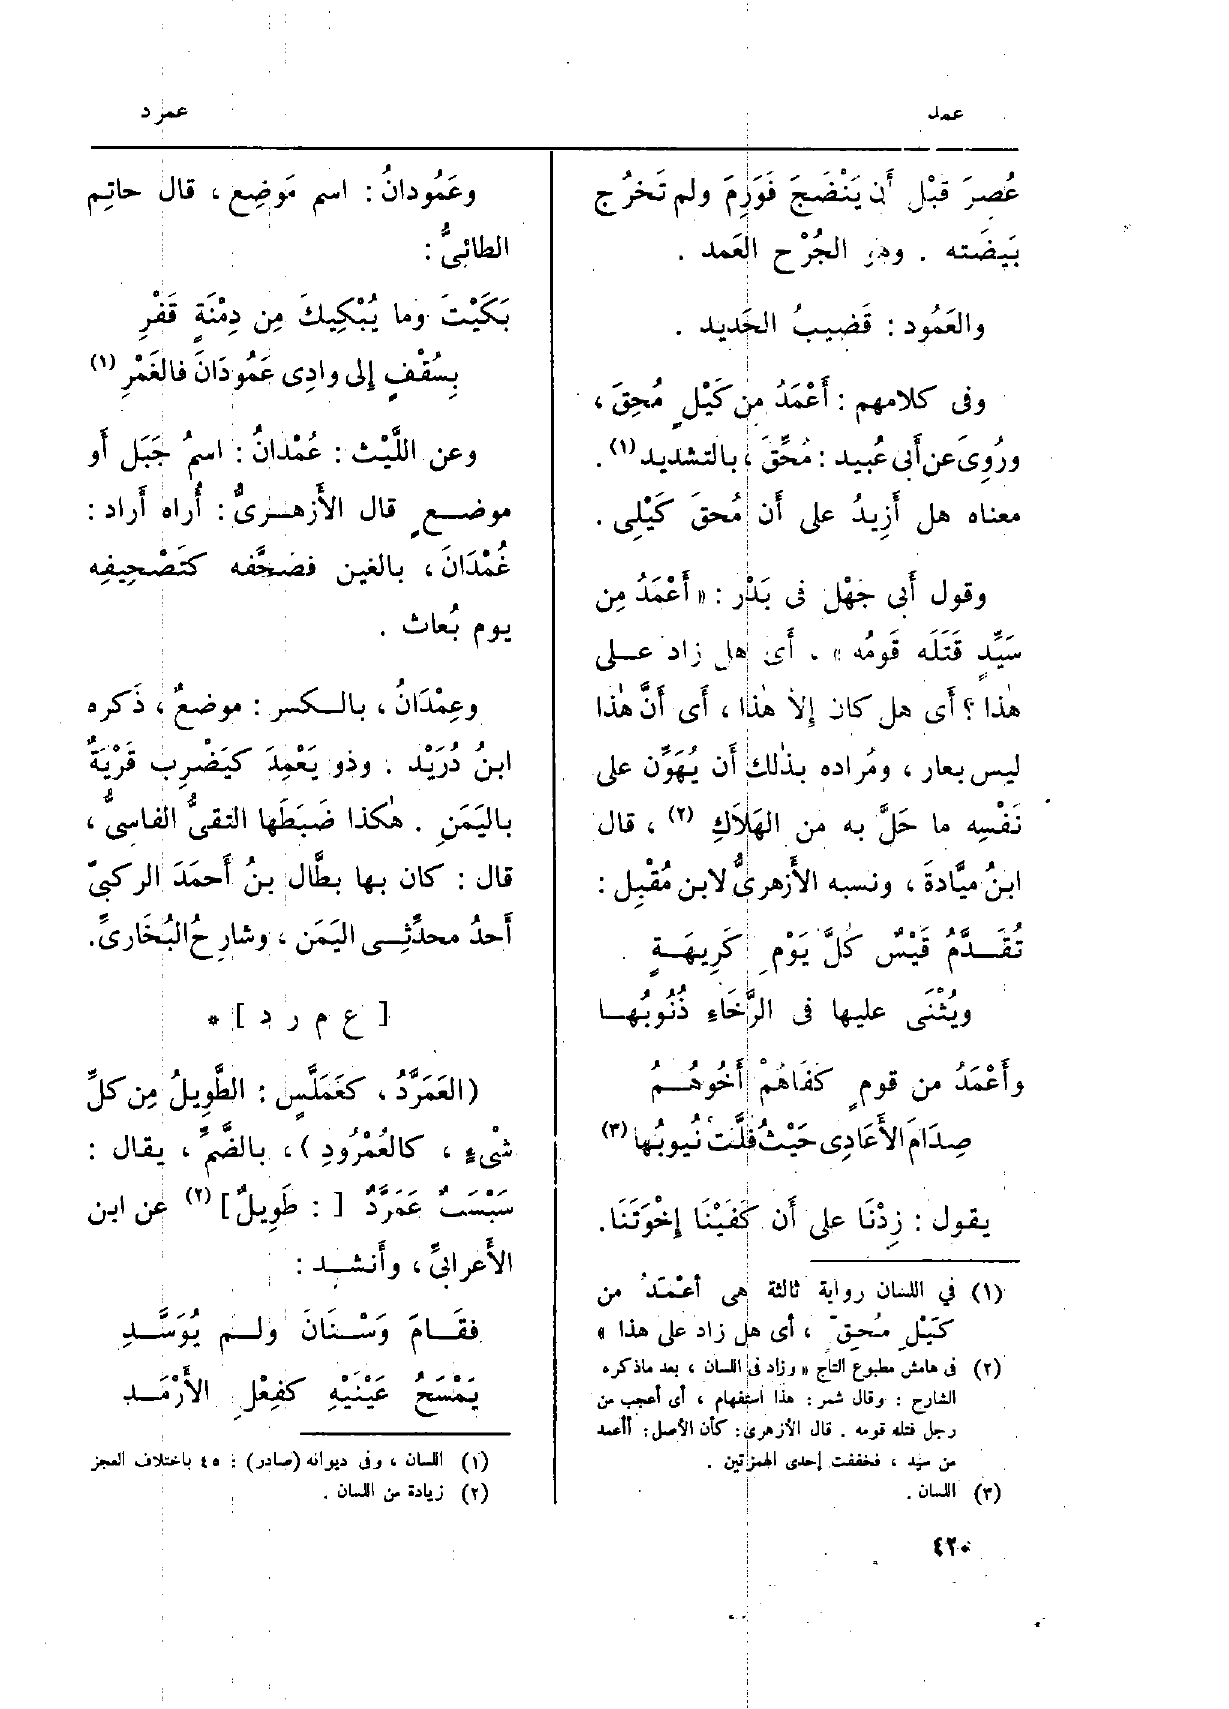 عمد
عمرد
عُصِرَ قبْل أَن يَنْضَجَ فَوَرِمَ ولم تَخرُج
بَيضَته . وهو الجُرْح العَمد .
والعَمُود : قَضيبُ الحَديد .
وفى كلامهم : أَعْمَدُ مِن كَيْلٍ مُحِقَ ،
ورُوِىَ عن أَبى عُبيد : مُحِّقَ ، بالتشديد (١) .
معناه هل أَزِيدُ على أَن مُحقَ كَيْلِى .
وقول أَبى جَهْل فى بَدْر : « أَعْمَدُ مِن
سَيِّدٍ قَتَلَه قَومُه » . أَى هل زاد عـلى
هٰذا ؟ أَى هل كان إِلاّ هٰذا ، أَى أَنَّ هٰذا
ليس بعار ، ومُراده بذٰلك أَن يُهَوِّن على
نَفْسِه ما حَلَّ به من الهَلَاكِ (٢) ، قال
ابنُ ميَّادةَ ، ونسبه الأَزهرىُّ لابن مُقْبِل :
تُقَـدَّمُ قَيْسٌ كلَّ يَوْمِ كَرِيهَـةٍ
ويُثْنَى عليها فى الرَّخَاءِ ذُنُوبُهـا
وأَعْمَدُ من قومٍ كفَاهُمْ أَخُوهُـمُ
صِدَامَ الأَعَادِى حَيْثُ فُلَّت نُيوبُها (٣)
يقول : زِدْنَا على أَن كَفَيْنَا إِخْوَتَنَا.
(١) في اللسان رواية ثالثة هى أعْمَدُ من
كَيْلٍ مُحِقّ ، أى هل زاد على هذا »
(٢) فى هامش مطبوع التاج « وزاد فى اللسان ، بعد ماذكره
الشارح : وقال شمر : هذا استفهام ، أى أعجب من
رجل قتله قومه . قال الأزهرى: كأن الأصل: أأعمد
من سيد ، فخففت إحدى الهمزتين .
(٣) اللسان .
وعَمُودانُ : اسم مَوضِع ، قال حاتِم
الطائِىُّ :
بَكَيْتَ وما يُبْكِيكَ مِن دِمْنَةٍ قَفْرِ
بِسُقْفٍ إِلى وادِى عَمُودَانَ فالغَمْرِ (١)
وعن اللَّيْث : عُمْدانُ : اسمُ جَبَل أَو
موضـعٍ قال الأَزهـرىُّ : أُراه أَراد :
غُمْدَانَ ، بالغين فصَحَّفه كتَصْحِيفِه
يوم بُعاث .
وعِمْدَانُ ، بالـكسر : موضعٌ ، ذَكره
ابنُ دُرَيْد . وذو يَعْمِدَ كيَضْرِب قَرْيَةٌ
باليَمَنِ . هٰكذا ضَبَطَها التقىُّ الفاسِىُّ ،
قال : كان بها بطَّال بنُ أَحمَدَ الركبىّ
أَحدُ محدِّثِـى اليَمَن ، وشارِحُ البُخَارىِّ.
[ ع م ر د ] *
(العَمَرَّدُ ، كعَمَلَّسٍ : الطَّوِيلُ مِن كلِّ
شْىءٍ ، كالعُمْرُودِ) ، بالضَّمِّ ، يقال :
سَبْسَبٌ عَمَرَّدٌ [ : طَوِيلٌ] (٢) عن ابن
الأَعرابىِّ ، وأَنشـد :
فقَـامَ وَسْـنَانَ ولـم يُوَسَّـدِ
يَمْسَحُ عَيْنَيْهِ كفِعْلِ الأَرْمَـدِ
(١) اللسان ، وفى ديوانه (صادر) : ٤٥ باختلاف العجز
(٢) زيادة من اللسان .
٤٢٠